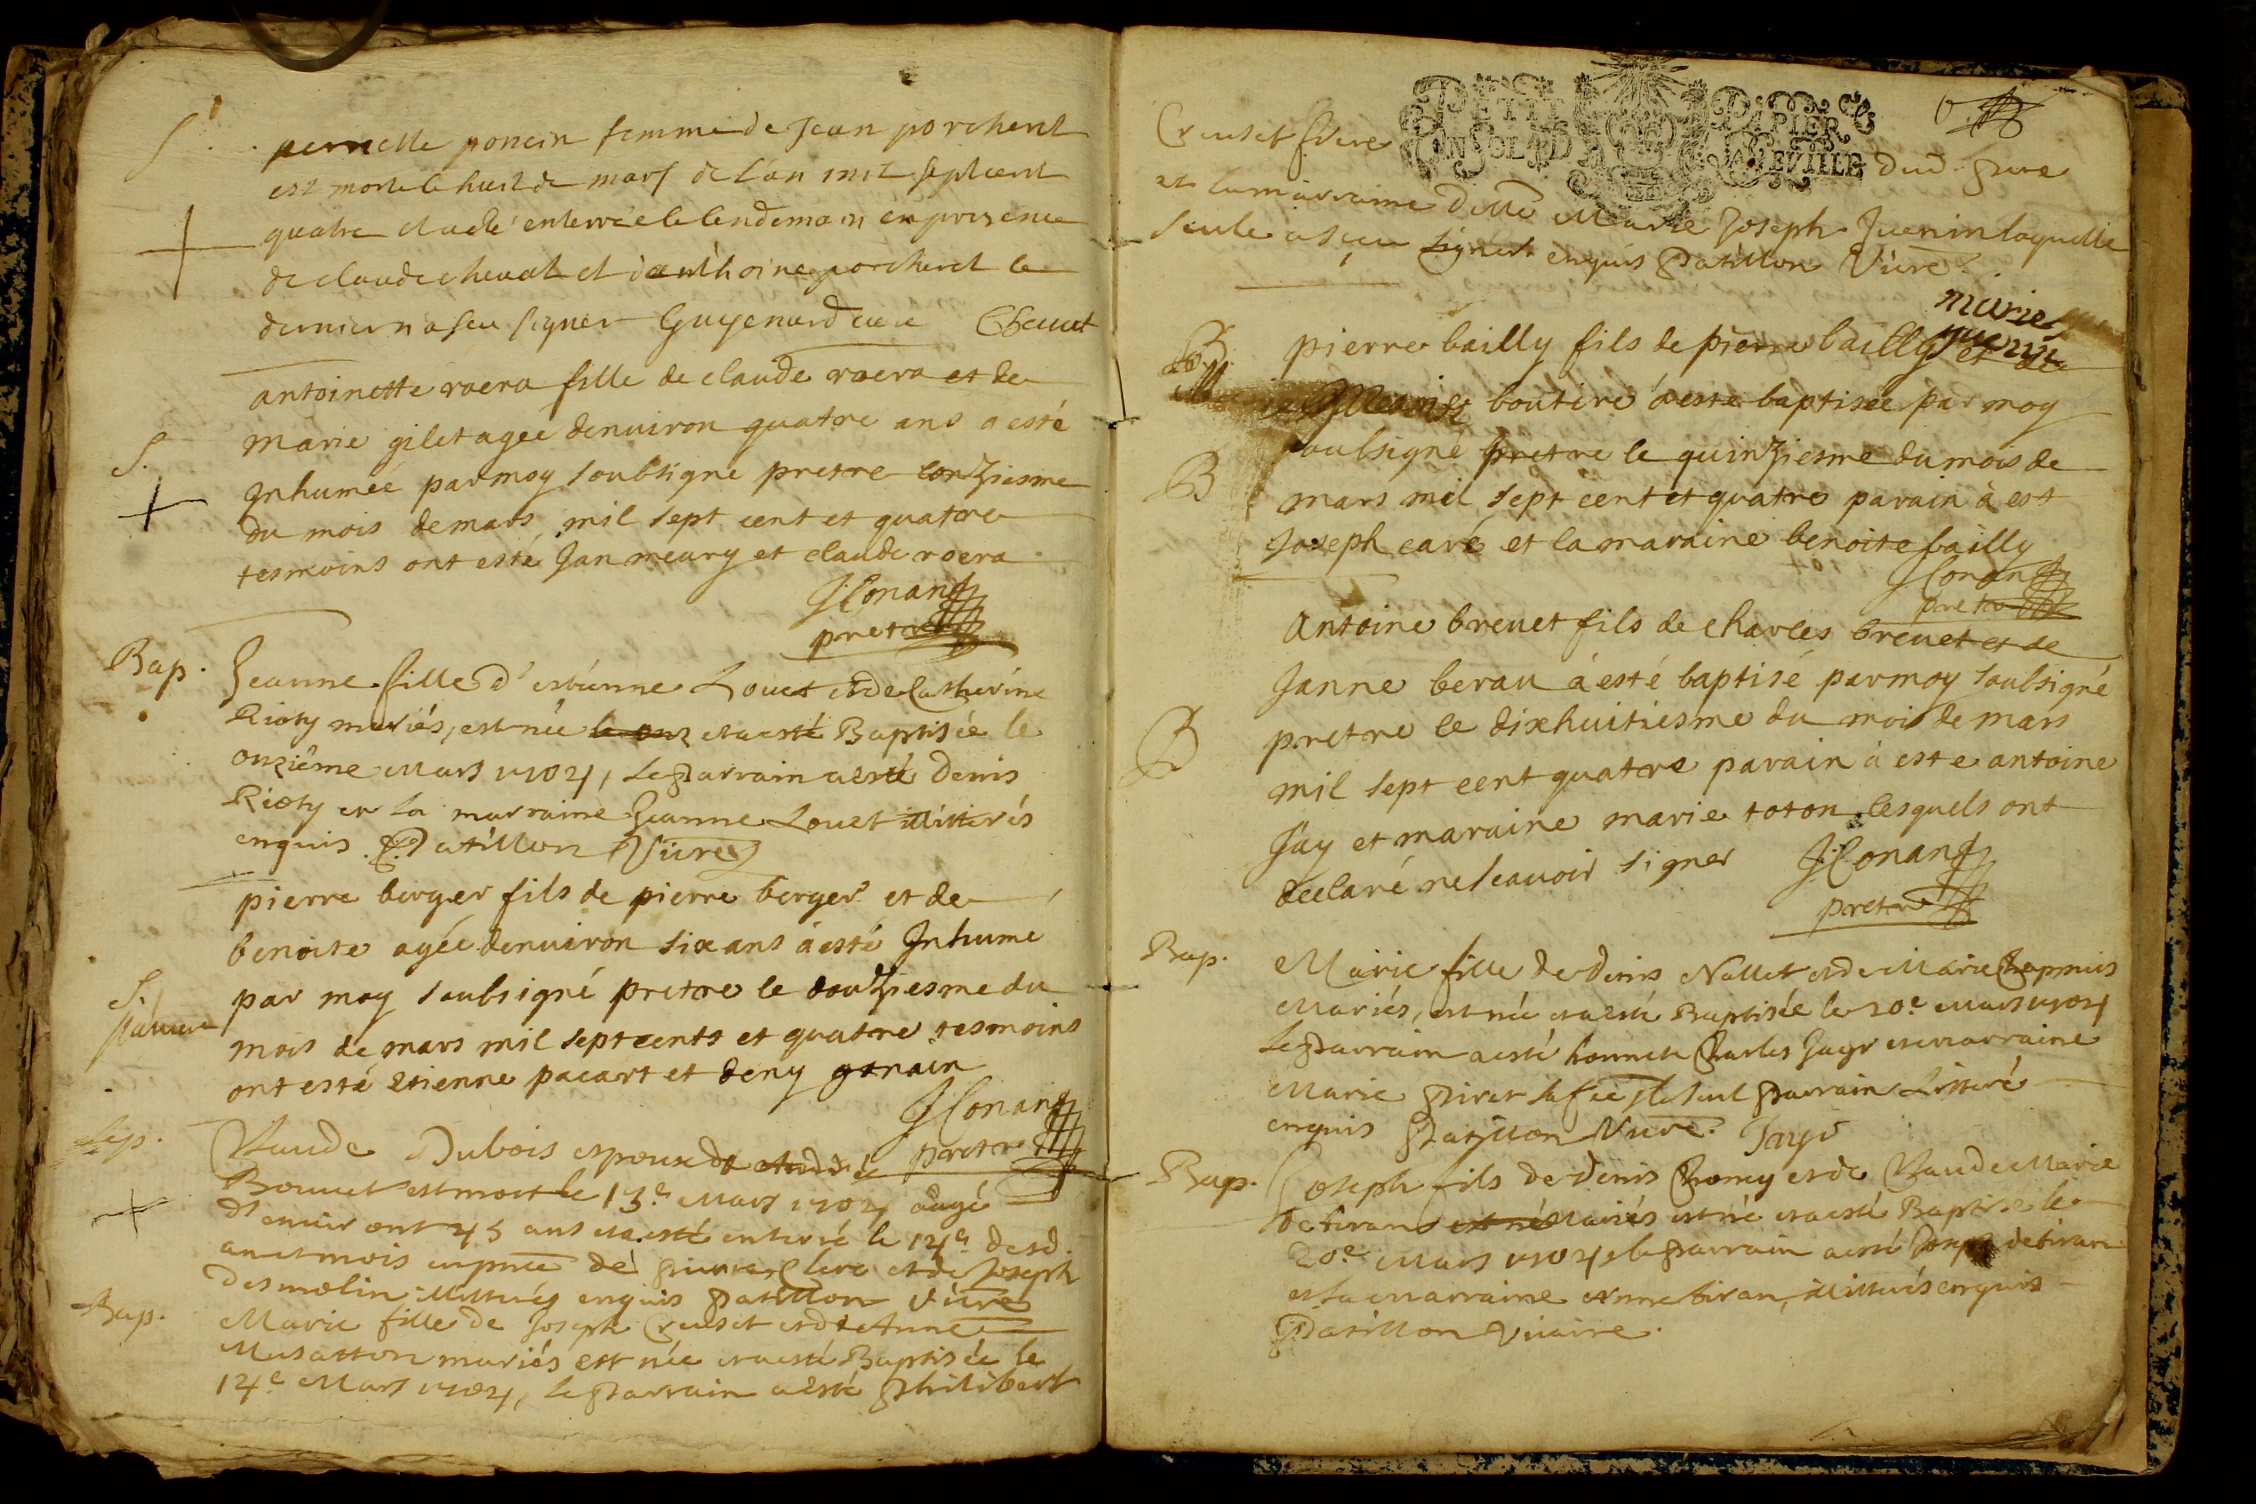 S.
pernette poncin femme de Jean porcheret
est morte le huit de mars de l'an mil sept cent
quatre et a esté enterrée le lendemain en presence
de claude chevat et d'anthoine porcheret le
dernier n'a sceu signer Guyenard curé Chevat
antoinette roera fille de claude roera et de
marie gilet agée denuiron quatre ans a esté
S.
Inhumée par moy soubsigné pretre l'onziesme
du mois de mars mil sept cent et quatre
tesmoins ont esté Jan meury et claude roera
J Conand
pretre
Bap.
Jeanne fille d'estienne Louet et de Catherine
Rioty mariés, est née et a esté Baptisée le
onziême Mars 1704, Le Parrain a esté Denis
Rioty et la marraine Jeanne Louet illitterés
enquis. Patillon Vicre
pierre berger fils de pierre berger et de
benoite agée denuiron six ans a esté Inhume
S.
par moy soubsigné pretre le douziesme du
mois de mars mil sept cents et quatre tesmoins
ont esté etienne pacart et deny genain
J Conand
pretre
Sep.
Claude Dubois espoux de
Bonnet est mort le 13e Mars 1704 aagé
d'enuiront 45 ans et a esté enterré le 14e desd.
an et mois en pnce de pierre Clerc et de Joseph
Desmolin illitterés enquis Patillon Vicre
Bap.
Marie fille de Joseph Creuset et de Anne
Musatton mariés est née et a esté Baptisée le
14e Mars 1704, Le Parrain a esté Philibert
PETIT PAPIER
Creuset frere dud. pere
et la marraine Dlle Marie Joseph Juenin laquelle
seule a sçeu signer enquis Patillon Vicre.
marie
juenin
pierre bailly fils de pierre bailly et de
boutire a esté baptisée par moy
soubsigné pretre le quinziesme du mois de
B
mars mil sept cent et quatre parain à est
Joseph caré et la maraine benoite bailly
J Conand
pretre
Antoine brevet fils de charles brevet et de
Janne berau a esté baptisé par moy soubsigné
B
pretre le dixhuitiesme du mois de mars
mil sept cent quatre parain à este antoine
Jay et maraine marie toton lesquels ont
declaré ne scavoir signer J Conand
pretre
Bap.
Marie fille de denis Nallet et de Marie Chapuis
Mariés, est née et a esté Baptisée le 20e Mars 1704
Le Parrain a esté honnete Charles Jayr et marraine
Marie Piret le seul Parrain Litteré
enquis Patillon Vicre. Jayr
Bap.
Joseph fils de Denis Chomy et de Claude Marie
Detiran Mariés est né et a esté Baptisé le
20e Mars 1704 le Parrain a esté Joseph detiran
et la marraine Anne tiran, illitterés enquis
Patillon Vicaire.